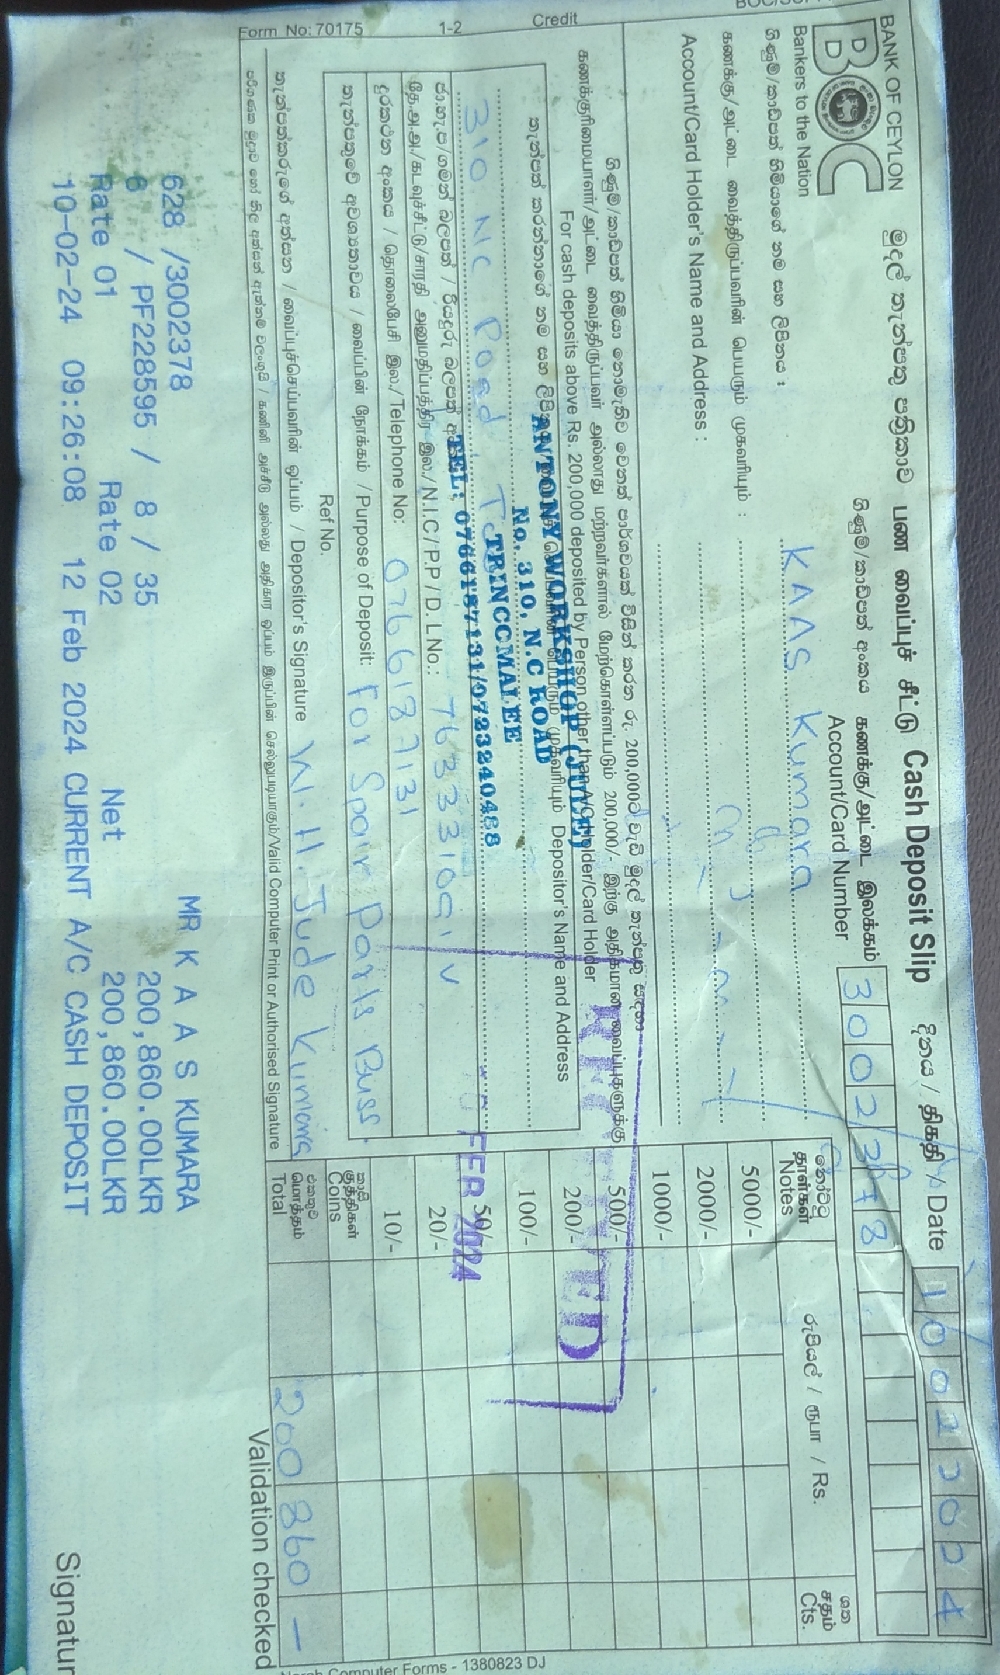 BANK OF CEYLON
BOC
Bankers to the Nation
මුදල් තැන්පතු පත්‍රිකාව பண வைப்புச் சீட்டு Cash Deposit Slip
දිනය / திகதி / Date 10022024
ගිණුම්/කාඩ්පත් අංකය கணக்கு/அட்டை இலக்கம்
Account/Card Number 3002378
ගිණුම්/කාඩ්පත් හිමියාගේ නම සහ ලිපිනය :
KAAS Kumara
கணக்கு/அட்டை வைத்திருப்பவரின் பெயரும் முகவரியும் :
Account/Card Holder's Name and Address :
ගිණුම්/කාඩ්පත් හිමියා නොමැතිව වෙනත් පාර්ශවයක් විසින් කරන රු. 200,000ට වැඩි මුදල් තැන්පතු සඳහා
கணக்குரிமையாளர்/அட்டை வைத்திருப்பவர் அல்லாது மற்றவர்களால் மேற்கொள்ளப்படும் 200,000/- இற்கு அதிகமான வைப்புகளுக்கு
For cash deposits above Rs. 200,000 deposited by Person other than A/C Holder/Card Holder
තැන්පත් කරන්නාගේ නම සහ முகவரியும் Depositor's Name and Address
ANTONY WORKSHOP (JUDE)
No. 310, N.C ROAD
310 NC Road
TRINCOMALEE
TEL: 0766187131/0723240488
ජා.හැ.ප/ගමන් බලපත් / රියදුරු බලපත්
தே.அ.அ/கடவுச்சீட்டு/சாரதி அனுமதிப்பத்திர இல./N.I.C/P.P/D. L No.: 763331091 V
දුරකථන අංකය / தொலைபேசி இல./Telephone No: 0766187131
තැන්පතුවේ අවශ්‍යතාවය / வைப்பின் நோக்கம் /Purpose of Deposit: For Spair Parts Buss.
Ref No.
තැන්පත්කරුගේ අත්සන / வைப்புச்செய்பவரின் ஒப்பம் / Depositor's Signature W. H. Jude Kumara
කணினி அச்சீடு அல்லது அதிகார ஒப்பம் இருப்பின் செல்லுபடியாகும்/Valid Computer Print or Authorised Signature
Form No: 70175 1-2 Credit
නෝට්ටු
தாள்கள்
Notes
රුපියල් / ரூபா / Rs.
ශත
சதம்
Cts.
5000/-
2000/-
1000/-
500/-
200/-
100/-
50/-
20/-
10/-
කාසි
குத்திகள்
Coins
එකතුව
மொத்தம்
Total 200 860 —
FEB 2024
Computer Forms - 1380823 DJ
Validation checked
628 /3002378 MR K A A S KUMARA
6 / PF228595 / 8 / 35 200,860.00LKR
Rate 01 Rate 02 Net 200,860.00LKR
10-02-24 09:26:08 12 Feb 2024 CURRENT A/C CASH DEPOSIT
Signatur